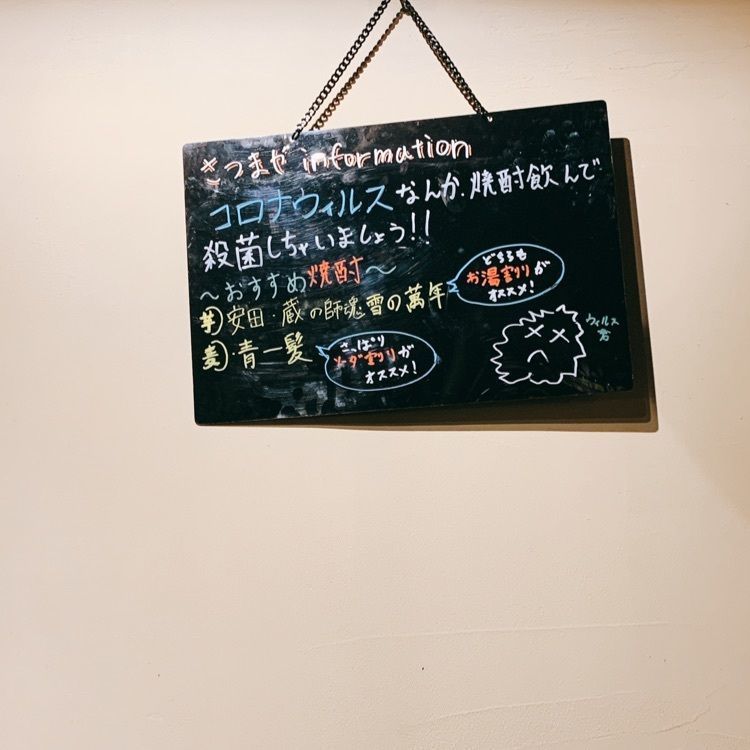 さつまや information
コロナウィルスなんか、焼酎飲んで
殺菌しちゃいましょう!!
〜おすすめ焼酎〜
どちらも
お湯割りが
オススメ!
芋 安田・蔵の師魂・雪の萬年
麦・青一髪
さっぱり
ソーダ割りが
オススメ!
ウィルス
君